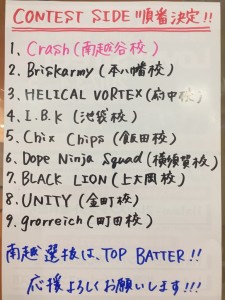 CONTEST SIDE 順番決定!!
1. Crash (南越谷校)
2. Briskarmy (本八幡校)
3. HELICAL VORTEX (府中校)
4. I.B.K (池袋校)
5. Chix Chips (飯田校)
6. Dope Ninja Squad (横須賀校)
7. BLACK LION (上大岡校)
8. UNITY (金町校)
9. grorreich (町田校)
南越選抜は、TOP BATTER!!!
応援よろしくお願いします!!!